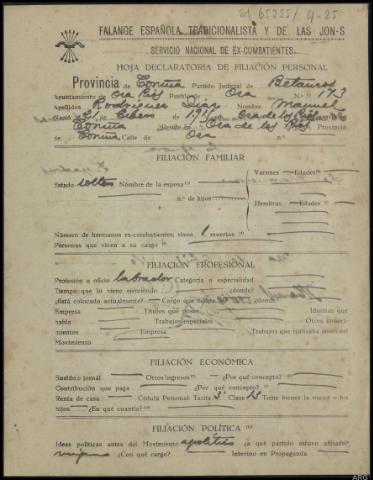 65255/4-25
FALANGE ESPAÑOLA TRADICIONALISTA Y DE LAS JON-S
SERVICIO NACIONAL DE EX-COMBATIENTES
HOJA DECLARATORIA DE FILIACIÓN PERSONAL
Provincia de Coruña Partido Judicial de Betanzos
Ayuntamiento de Oza Pueblo de Oza N.º 173
Apellidos Rodríguez Díaz Nombre Manuel
Enero de 191
Coruña Oza de los Ríos Provincia
de Coruña Calle de Oza
FILIACIÓN FAMILIAR
Varones Edades
Estado soltero Nombre de la esposa
n.º de hijos
Hembras Edades
Número de hermanos ex-combatientes; vivos, 1 muertos
Personas que viven a su cargo
FILIACIÓN PROFESIONAL
Profesión u oficio labrador Categoría o especialidad
Tiempo que lo viene ejerciendo ¿dónde?
¿Está colocado actualmente? Cargo que ¿dónde?
Empresa Títulos que posee Idiomas que
habla Trabajos especiales
mientos Empresa Trabajos que realizaba antes del
Movimiento
FILIACIÓN ECONÓMICA
Sueldo o jornal Otros ingresos ¿Por qué concepto?
Contribución que paga ¿Por qué concepto?
Renta de casa Cédula Personal: Tarifa 3ª Clase 13 Tiene bienes la mujer o los
hijos ¿En qué cuantía?
FILIACIÓN POLÍTICA
Ideas políticas antes del Movimiento apolítico ¿a qué partido estuvo afiliado?
ninguno ¿Con qué cargo? Intervino en Propaganda